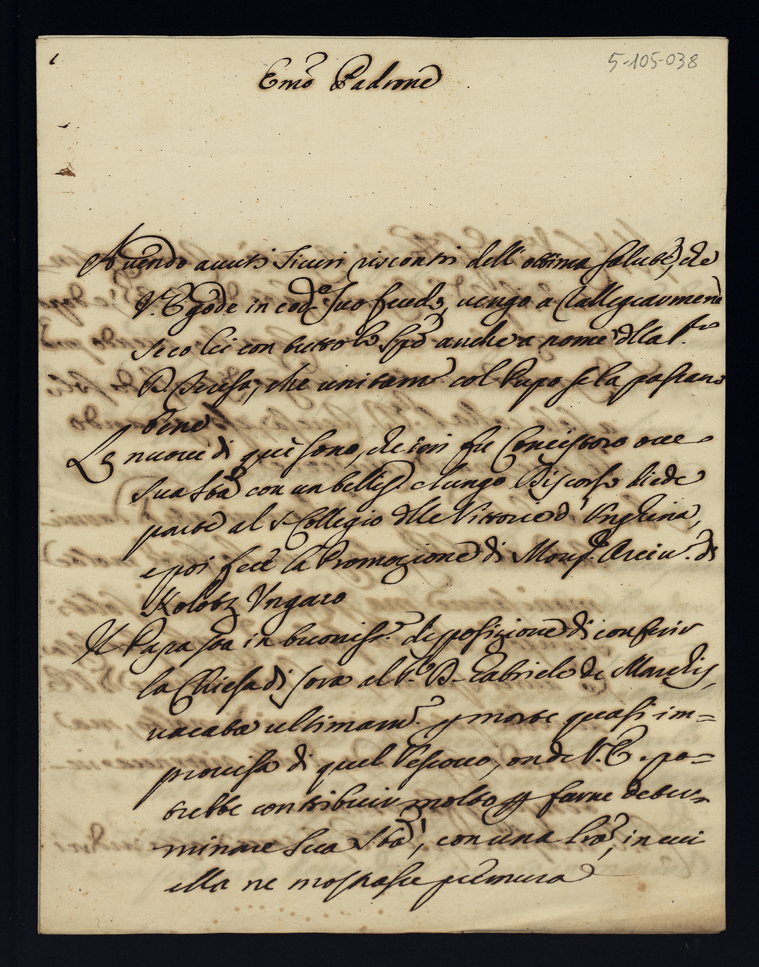 5-105-038
Em.o Padrone
Avendo avuti sicuri riscontri dell'ottima salute, che
V. E. gode in cod.o suo feudo, vengo a rallegrarmene
seco lei con tutto lo Sp.o anche a nome della
D. Teresa, che unitam.e col Pupo se la passano
bene
Le nuove di qui sono, che ieri fu Concistoro ove
Sua Stà con un belliss. e lungo Discorso diede
parte al S. Collegio delle Vittorie d'Ungheria,
e poi fece la Promozione di Mons. Arciv. di
Kolotz Ungaro
Il Papa sta in buoniss.a disposizione di conferir
la Chiesa di Sora al P. D. Gabriele de Marchis,
vacata ultimam.e p morte quasi im=
provisa di quel Vescovo, onde V. E. po=
trebbe contribuir molto p farne deter=
minare Sua Stà, con una lra, in cui
ella ne mostrasse premura